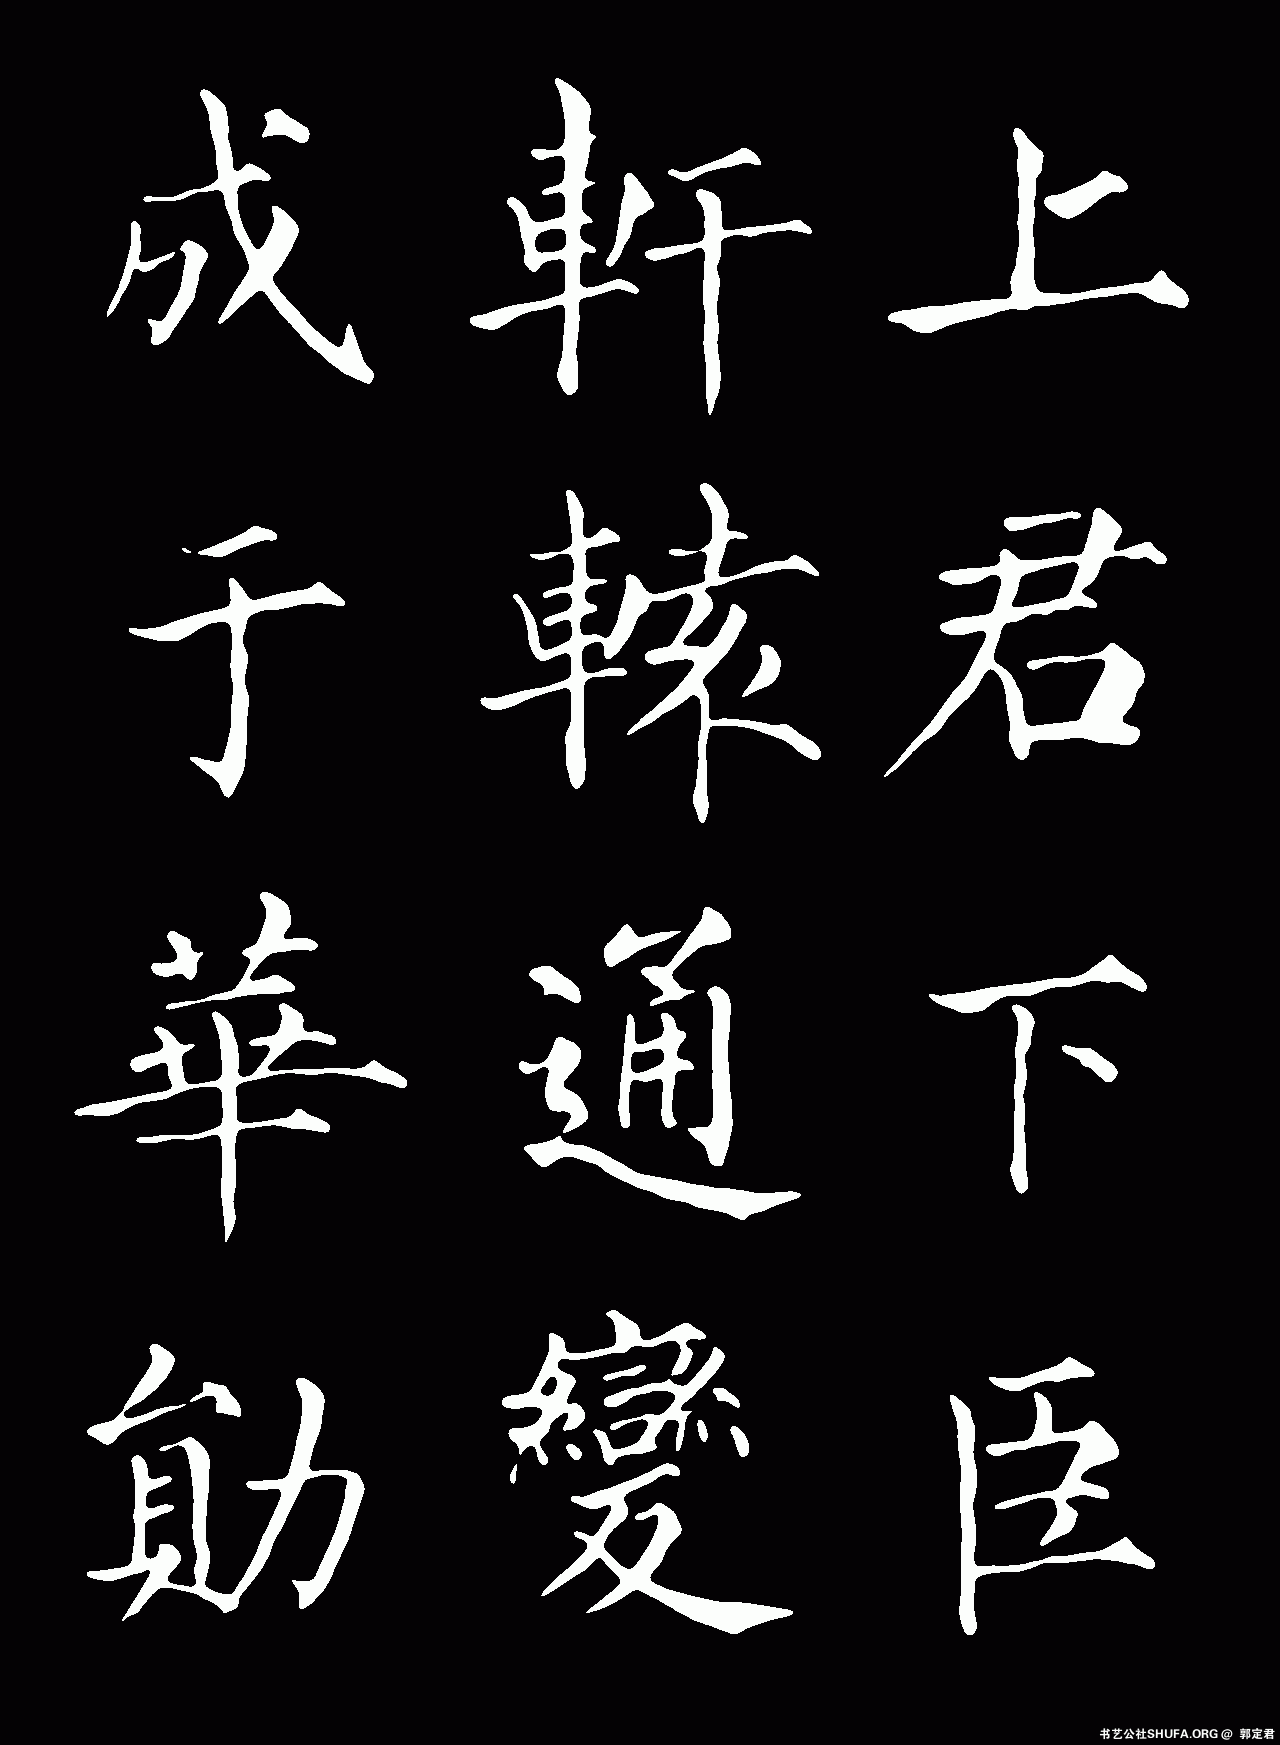 上君下臣
軒轅通變
成于華勛
书艺公社SHUFA.ORG @ 郭定君